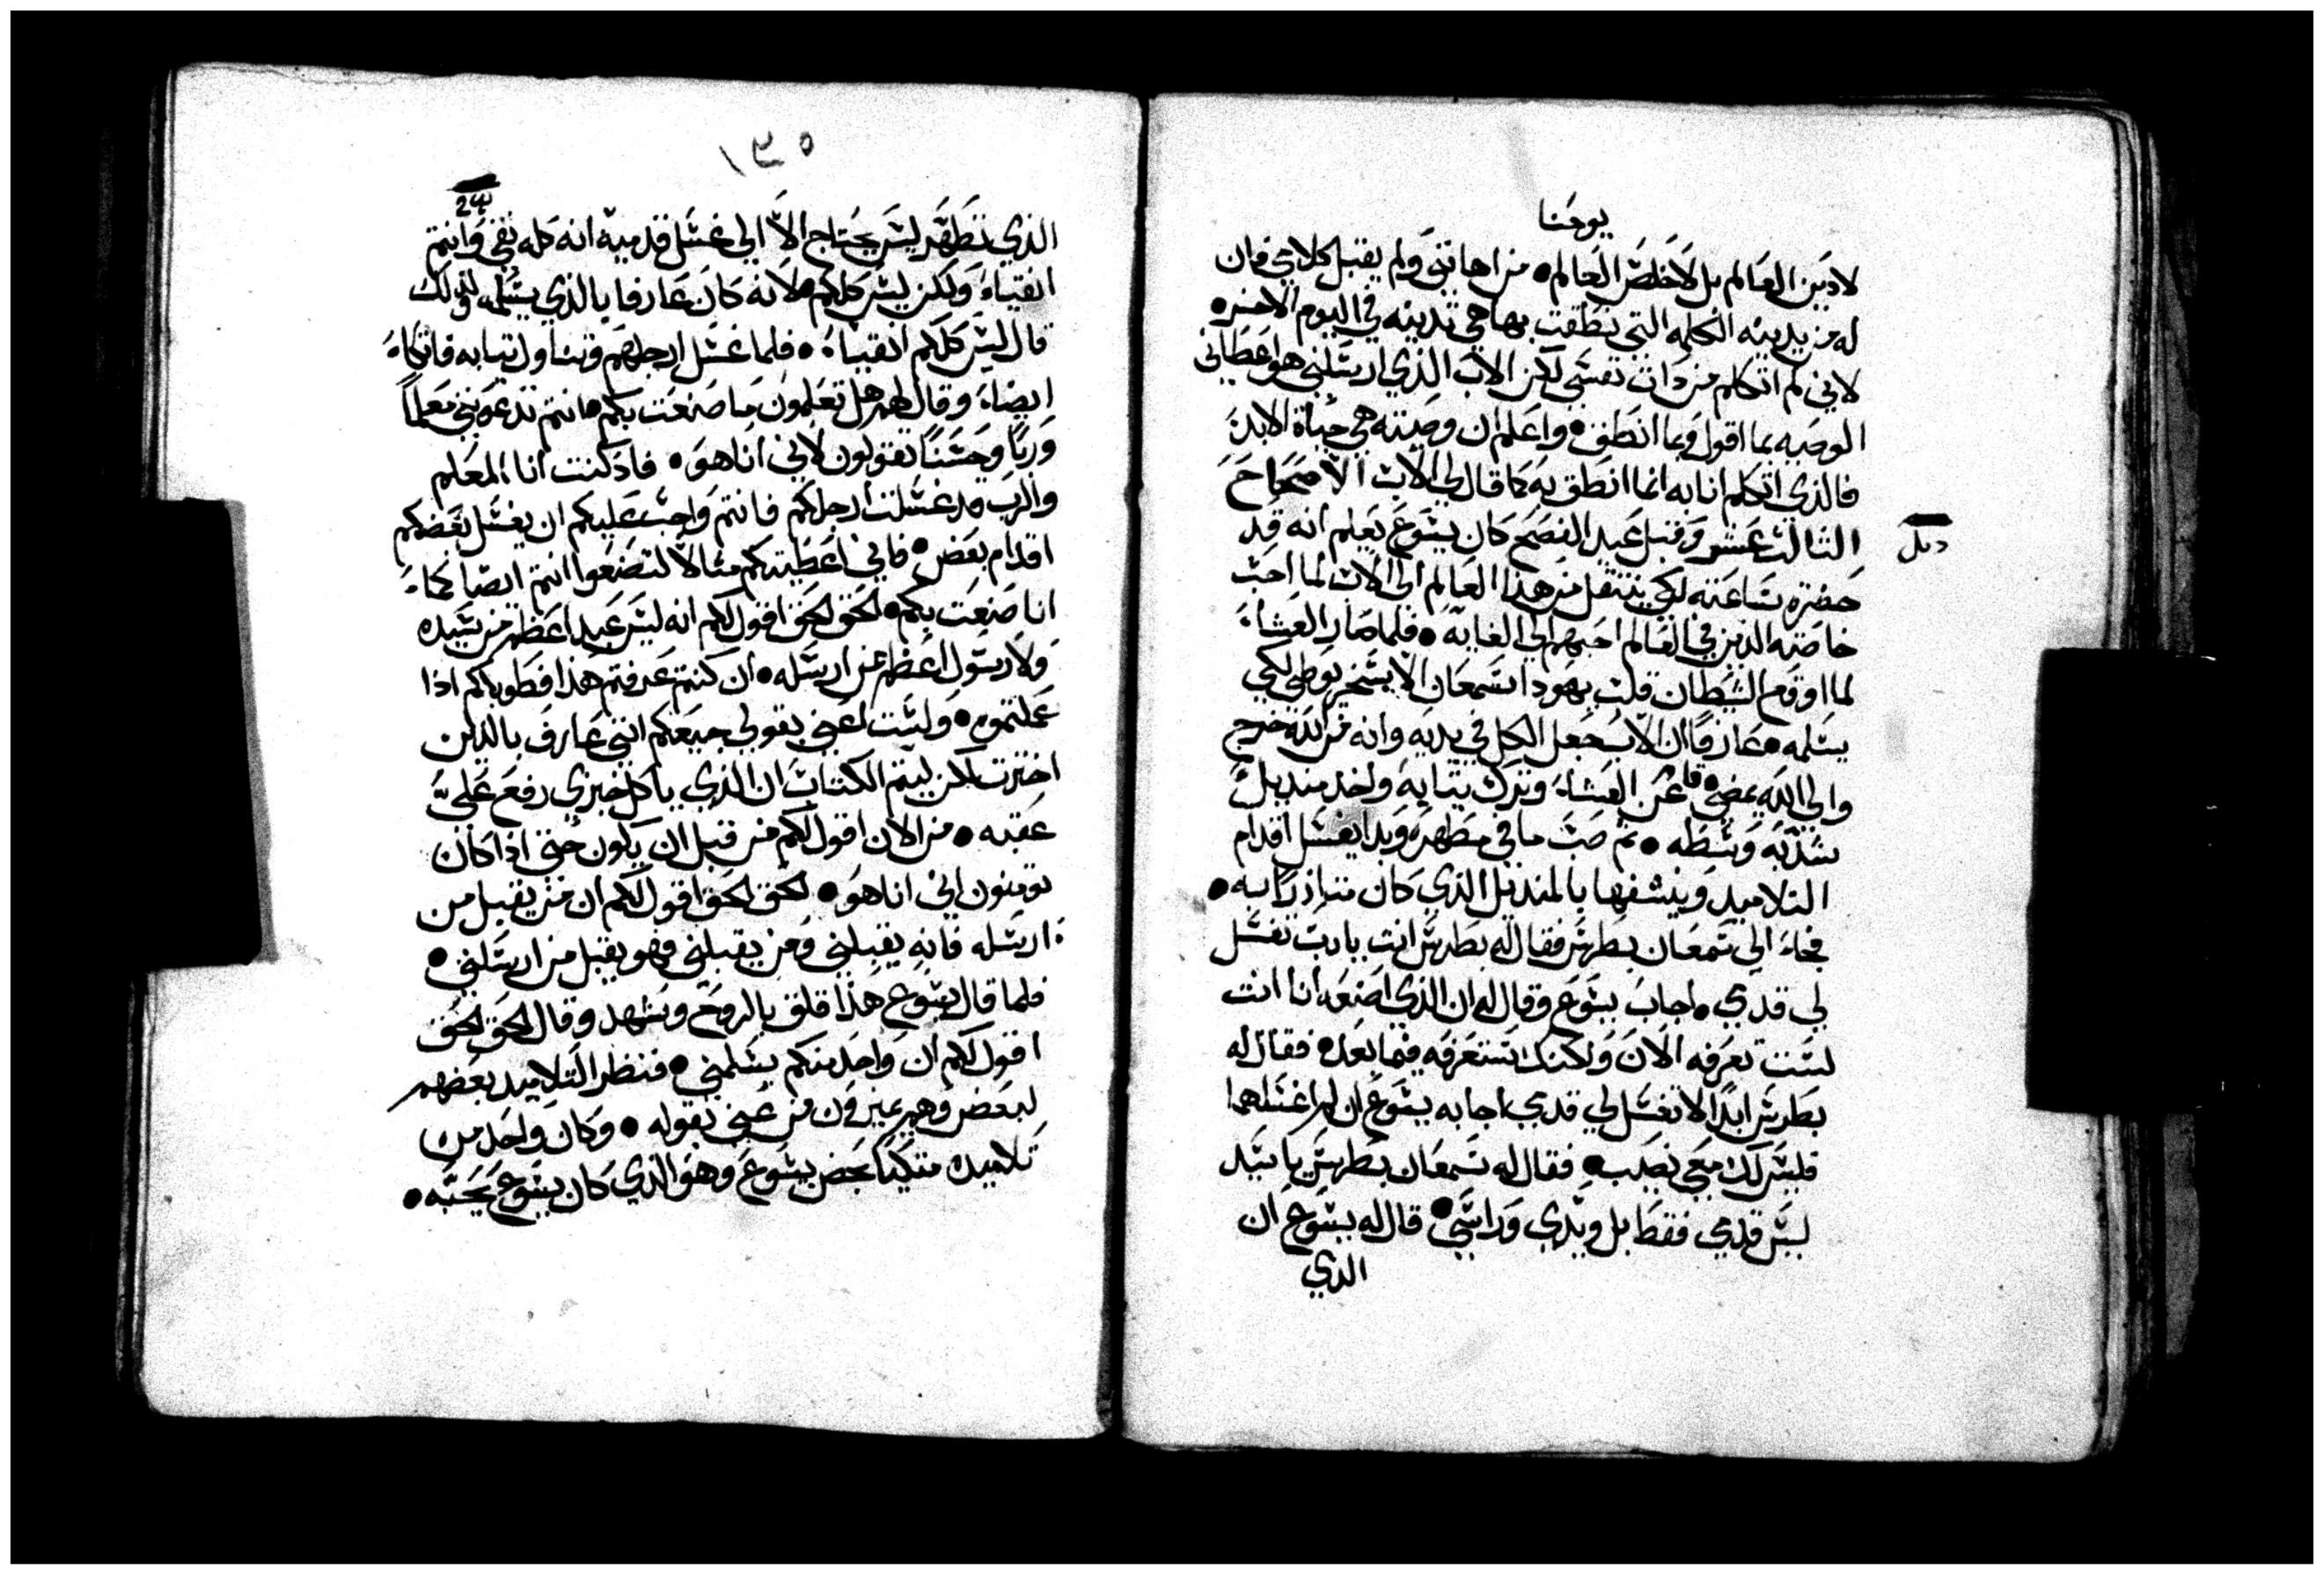 يوحنا
لادين العالم بل لاخلص العالم • من اهانني ولم يقبل كلامي فان
له من يدينه الكلمه التي نطقت بها هي تدينه في اليوم الاخر •
لاني لم اتكلم من دات نفسي لكن الاب الذي ارسلني هو اعطاني
الوصيه بما اقول وبما انطق • واعلم ان وصيته هي حياة الابد
فالذي اتكلم انا به انما انطق به كما قال لي الاب الاصحاح
الثالث عشر وقبل عيد الفصح كان يسوع يعلم انه قد
حضرة ساعته لكي ينتقل من هذا العالم الى الاب لما احب
خاصته الدين في العالم احبهم الى الغايه • فلما صار العشاء
لما اوقع الشيطان قلب يهودا سمعان الاسخريوطي لكي
يسلمه • عارفا ان الاب جعل الكل في يديه وانه من الله خرج
والى الله يمضي • قام عن العشاء وترك تيابه واخد منديل
شد به وسطه • تم صب ما في مطهره وبدا يغسل اقدام
التلاميد وينشفها بالمنديل الذي كان متازرا به •
فجاء الى سمعان بطرس فقال له بطرس انت يا رب تغسل
لي قدمي • اجاب يسوع وقال له ان الذي اصنعه انا انت
لست تعرفه الان ولكنك ستعرفه فيما بعد • فقال له
بطرس ابدا لا تغسل لي قدمي اجابه يسوع ان لم اغسلهما
فليس لك معي نصيب • فقال له سمعان بطرس يا سيد
ليس قدمي فقط بل ويدي وراسي • قال له يسوع ان
الذي
١٣٥
الذي تطهر ليس يحتاج الا الى غسل قدميه انه كله نقي وانتم
انقياء ولكن ليس كلكم لانه كان عارفا بالذي يسلمه ولذلك
قال ليس كلكم انقياء • فلما غسل ارجلهم وتناول تيابه فاتكاء
ايضاء وقال لهم هل تعلمون ما صنعت بكم انتم تدعونني معلما
وربا وحسنا تقولون لاني انا هو • فاذ كنت انا المعلم
والرب قد غسلت ارجلكم فانتم واجب عليكم ان يغسل بعضكم
اقدام بعض • فاني اعطيتكم مثالا لتصنعوا انتم ايضا كما
انا صنعت بكم • الحق الحق اقول لكم انه ليس عبد اعظم من سيده
ولا رسول اعظم من ارسله • ان كنتم عرفتم هذا فطوباكم اذا
عملتموه • ولست اعني بقولي جميعكم انني عارف بالدين
اخترت لكن ليتم الكتاب ان الذي ياكل خبزي رفع علي
عقبه • من الان اقول لكم من قبل ان يكون حتى اذا كان
تومنون اني انا هو • الحق الحق اقول لكم ان من يقبل من
ارسله فانه يقبلني ومن يقبلني فهو يقبل من ارسلني •
فلما قال يسوع هذا قلق بالروح وشهد وقال الحق الحق
اقول لكم ان واحد منكم يسلمني • فنظر التلاميد بعضهم
لبعض وهم يميزون من عني بقوله • وكان واحد من
تلاميده متكيا بحضن يسوع وهو الذي كان يسوع يحبه •